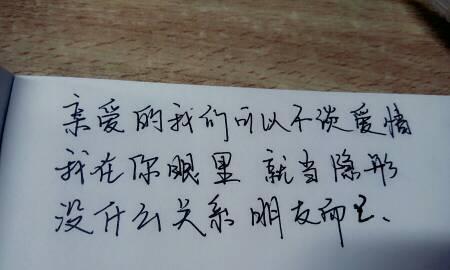 亲爱的我们可以不谈爱情
我在你眼里 就当隐形
没什么关系 朋友而已、